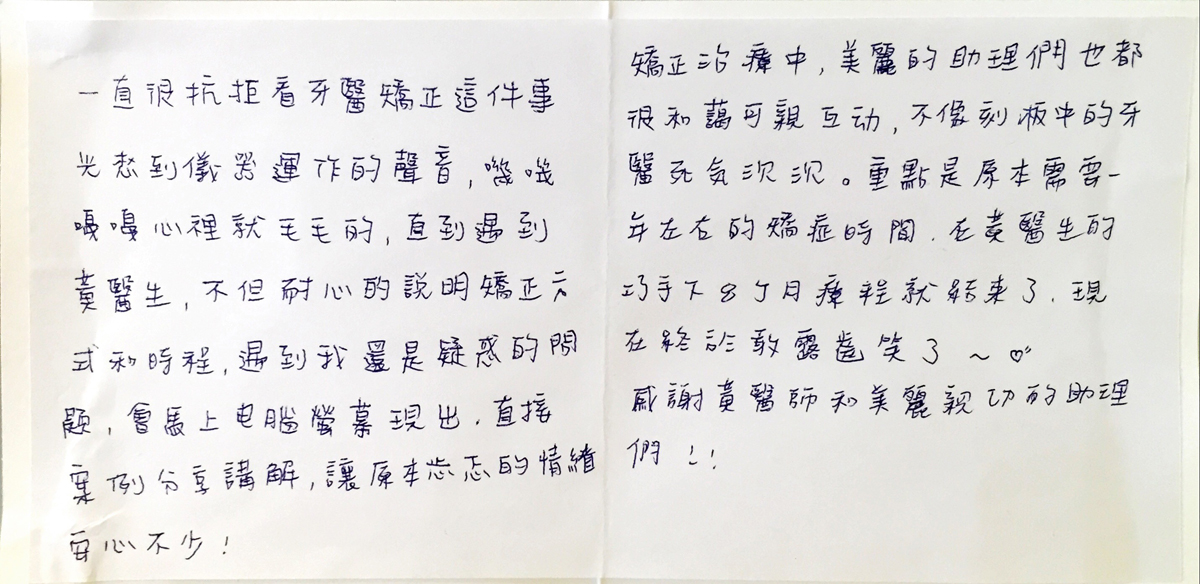 一直很抗拒看牙醫矯正這件事
光想到儀器運作的聲音，嘰嘰
嘎嘎心裡就毛毛的，直到遇到
黃醫生，不但耐心的說明矯正方
式和時程，遇到我還是疑惑的問
題，會馬上电腦螢幕現出，直接
案例分享講解，讓原本忐忑的情緒
安心不少！
矯正治療中，美麗的助理們也都
很和藹可親互动，不像刻板中的牙
醫死気沉沉。重點是原本需要一
年左右的矯症時間，在黃醫生的
巧手下8个月療程就結束了，現
在終於敢露齒笑了～♡
感謝黃醫師和美麗親切的助理
們！！